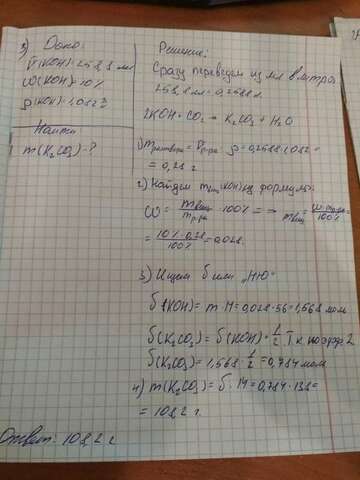 3) Дано:
V(KOH)=258,8 мл
ω(KOH)=10%
ρ(KOH)=1,082
Найти
m(K₂CO₃)-?
Решение:
Сразу переведем из мл в литры
258,8 мл=0,2588 л.
2KOH+CO₂ → K₂CO₃+H₂O
1) mраствора=Vр-ра · ρ=0,2588·1,082=
=0,28 г
2) Найдем mвещ(KOH) из формулы:
ω = mвещ/mр-ра · 100% => mвещ= ω·mр-ра/100% =
= 10%·0,28/100% =0,028.
3) Ищем б или "Ню"
б(KOH)= m·M=0,028·56=1,568 моль
б(K₂CO₃)=б(KOH)· 1/2. Т.к коэфф 2
б(K₂CO₃)=1,568· 1/2 =0,784 моль
4) m(K₂CO₃)=б·M=0,784·138=
= 108,2 г.
Ответ: 108,2 г